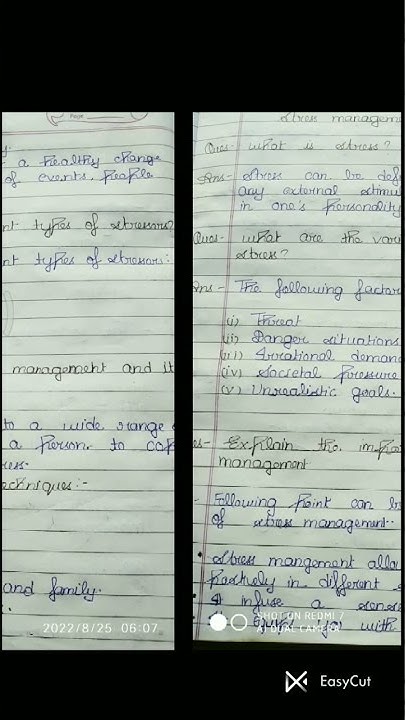 Page
a healthy change
of events. People
nt types of stressors?
nt types of stressors:
management and it
to a wide range
a person to cop
ress.
echniques:-
and family.
2022/8/25 06:07
Stress managem
Ques- What is stress?
Ans- Stress can be def
any external stimu
in one's personality
Ques- What are the vari
stress?
Ans- The following factor
(i) Threat
(ii) Danger situations
(iii) Irrational deman
(iv) Societal pressure
(v) Unrealistic goals.
es- Explain the imp
management
- Following point can b
of stress management-
• Stress mangement allo
in different
• It infuse a sense
for with
SHOT ON REDMI 7
AI DUAL CAMERA
EasyCut